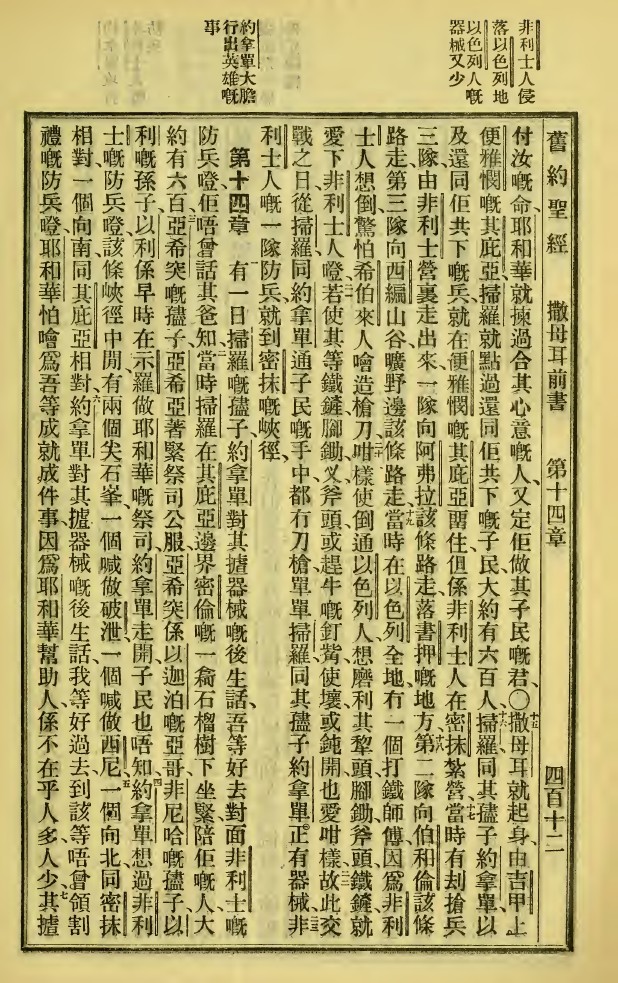 非利士人侵
落以色列地
以色列人嘅
器械又少
約拿單大膽
行出英雄嘅
事
舊約聖經 撒母耳前書 第十四章 四百十二
付汝嘅命、耶和華就揀過合其心意嘅人、又定佢做其子民嘅君、〇十五撒母耳就起身、由吉甲上
便雅憫嘅其庇亞、掃羅就點過還同佢共下嘅子民、大約有六百人、十六掃羅同其孻子約拿單、以
及還同佢共下嘅兵、就在便雅憫嘅其庇亞罶住、但係非利士人在密抹紮營、十七當時有刦搶兵
三隊、由非利士營裏走出來、一隊向阿弗拉該條路走、落書押嘅地方、十八第二隊向伯和倫該條
路走、第三隊向西編山谷曠野邊該條路走、十九當時在以色列全地、有一個打鐵師傅、因爲非利
士人想倒驚怕希伯來人噲造槍刀、二十咁樣使倒通以色列人、想磨利其犂頭、腳鋤、斧頭、鐵鏟、就
愛下非利士人嶝、二一若使其等鐵鏟、腳鋤、叉、斧頭、或趕牛嘅釘觜、使壞或鈍開、也愛咁樣、二二故此交
戰之日、從掃羅同約拿單通子民嘅手中、都冇刀槍、單單掃羅同其孻子約拿單、正有器械、二三非
利士人嘅一隊防兵、就到密抹嘅峽徑、
第十四章 有一日、掃羅嘅孻子約拿單、對其𢵧器械嘅後生話、吾等好去對面非利士嘅
防兵嶝、佢唔曾話其爸知、二當時掃羅在其庇亞邊界、密倫嘅一兜石榴樹下坐緊、陪佢嘅人大
約有六百、三亞希突嘅孻子亞希亞、著緊祭司公服、亞希突係以迦泊嘅亞哥、非尼哈嘅孻子、以
利嘅孫子、以利係早時在示羅做耶和華嘅祭司、約拿單走開、子民也唔知、四約拿單想過非利
士嘅防兵嶝、該條峽徑中間、有兩個尖石峯、一個喊做破泄、一個喊做西尼、五一個向北、同密抹
相對、一個向南、同其庇亞相對、六約拿單對其𢵧器械嘅後生話、我等好過去到該等唔曾領割
禮嘅防兵嶝、耶和華怕噲爲吾等成就成件事、因爲耶和華幫助人、係不在乎人多人少、七其𢵧